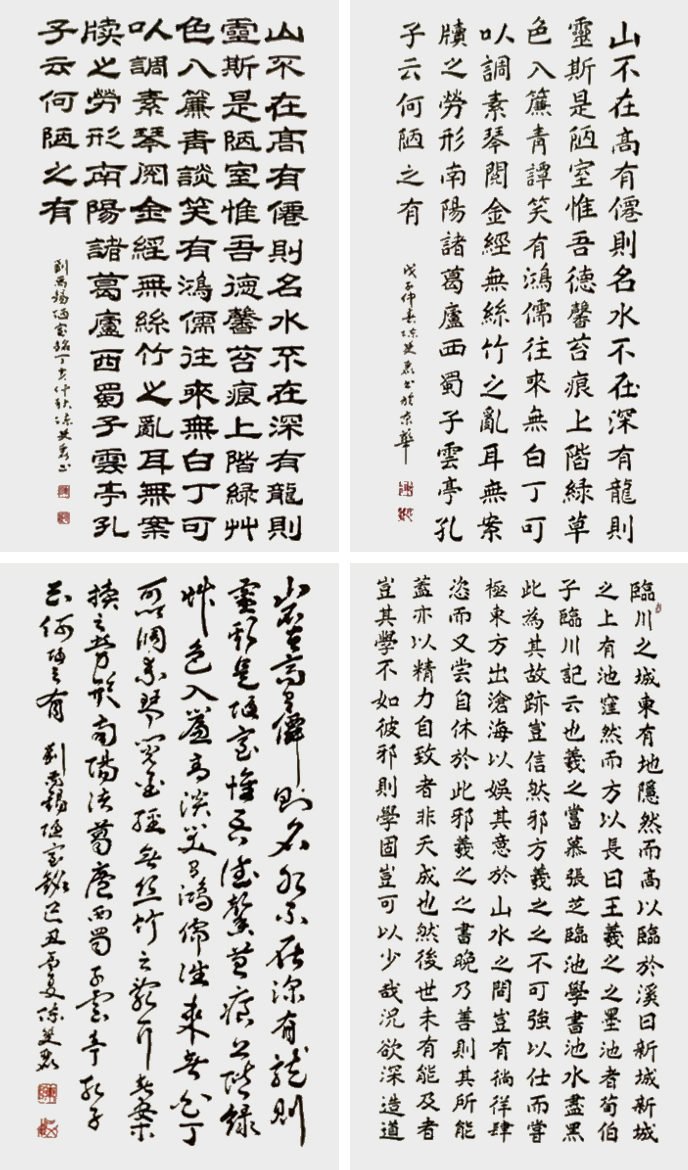 山不在高有僊則名水不在深有龍則
靈斯是陋室惟吾德馨苔痕上階綠艸
色入簾青談笑有鴻儒往來無白丁可
以調素琴閱金經無絲竹之亂耳無案
牘之勞形南陽諸葛廬西蜀子雲亭孔
子云何陋之有
劉禹錫陋室銘丁亥仲秋陳英書
山不在高有僊則名水不在深有龍則
靈斯是陋室惟吾德馨苔痕上階綠草
色入簾青譚笑有鴻儒往來無白丁可
以調素琴閱金經無絲竹之亂耳無案
牘之勞形南陽諸葛廬西蜀子雲亭孔
子云何陋之有
戊子仲春陳英書於京華
山不在高有僊則名水不在深有龍則
靈斯是陋室惟吾德馨苔痕上階綠
艸色入簾青談笑有鴻儒往來無白丁
可以調素琴閱金經無絲竹之亂耳無案
牘之勞形南陽諸葛廬西蜀子雲亭孔子
云何陋之有
劉禹錫陋室銘己丑孟夏陳英
臨川之城東有地隱然而高以臨於溪曰新城新城
之上有池窪然而方以長曰王羲之之墨池者荀伯
子臨川記云也羲之嘗慕張芝臨池學書池水盡黑
此為其故跡豈信然邪方羲之之不可強以仕而嘗
極東方出滄海以娛其意於山水之間豈有徜徉肆
恣而又嘗自休於此邪羲之之書晚乃善則其所能
蓋亦以精力自致者非天成也然後世未有能及者
豈其學不如彼邪則學固豈可以少哉況欲深造道